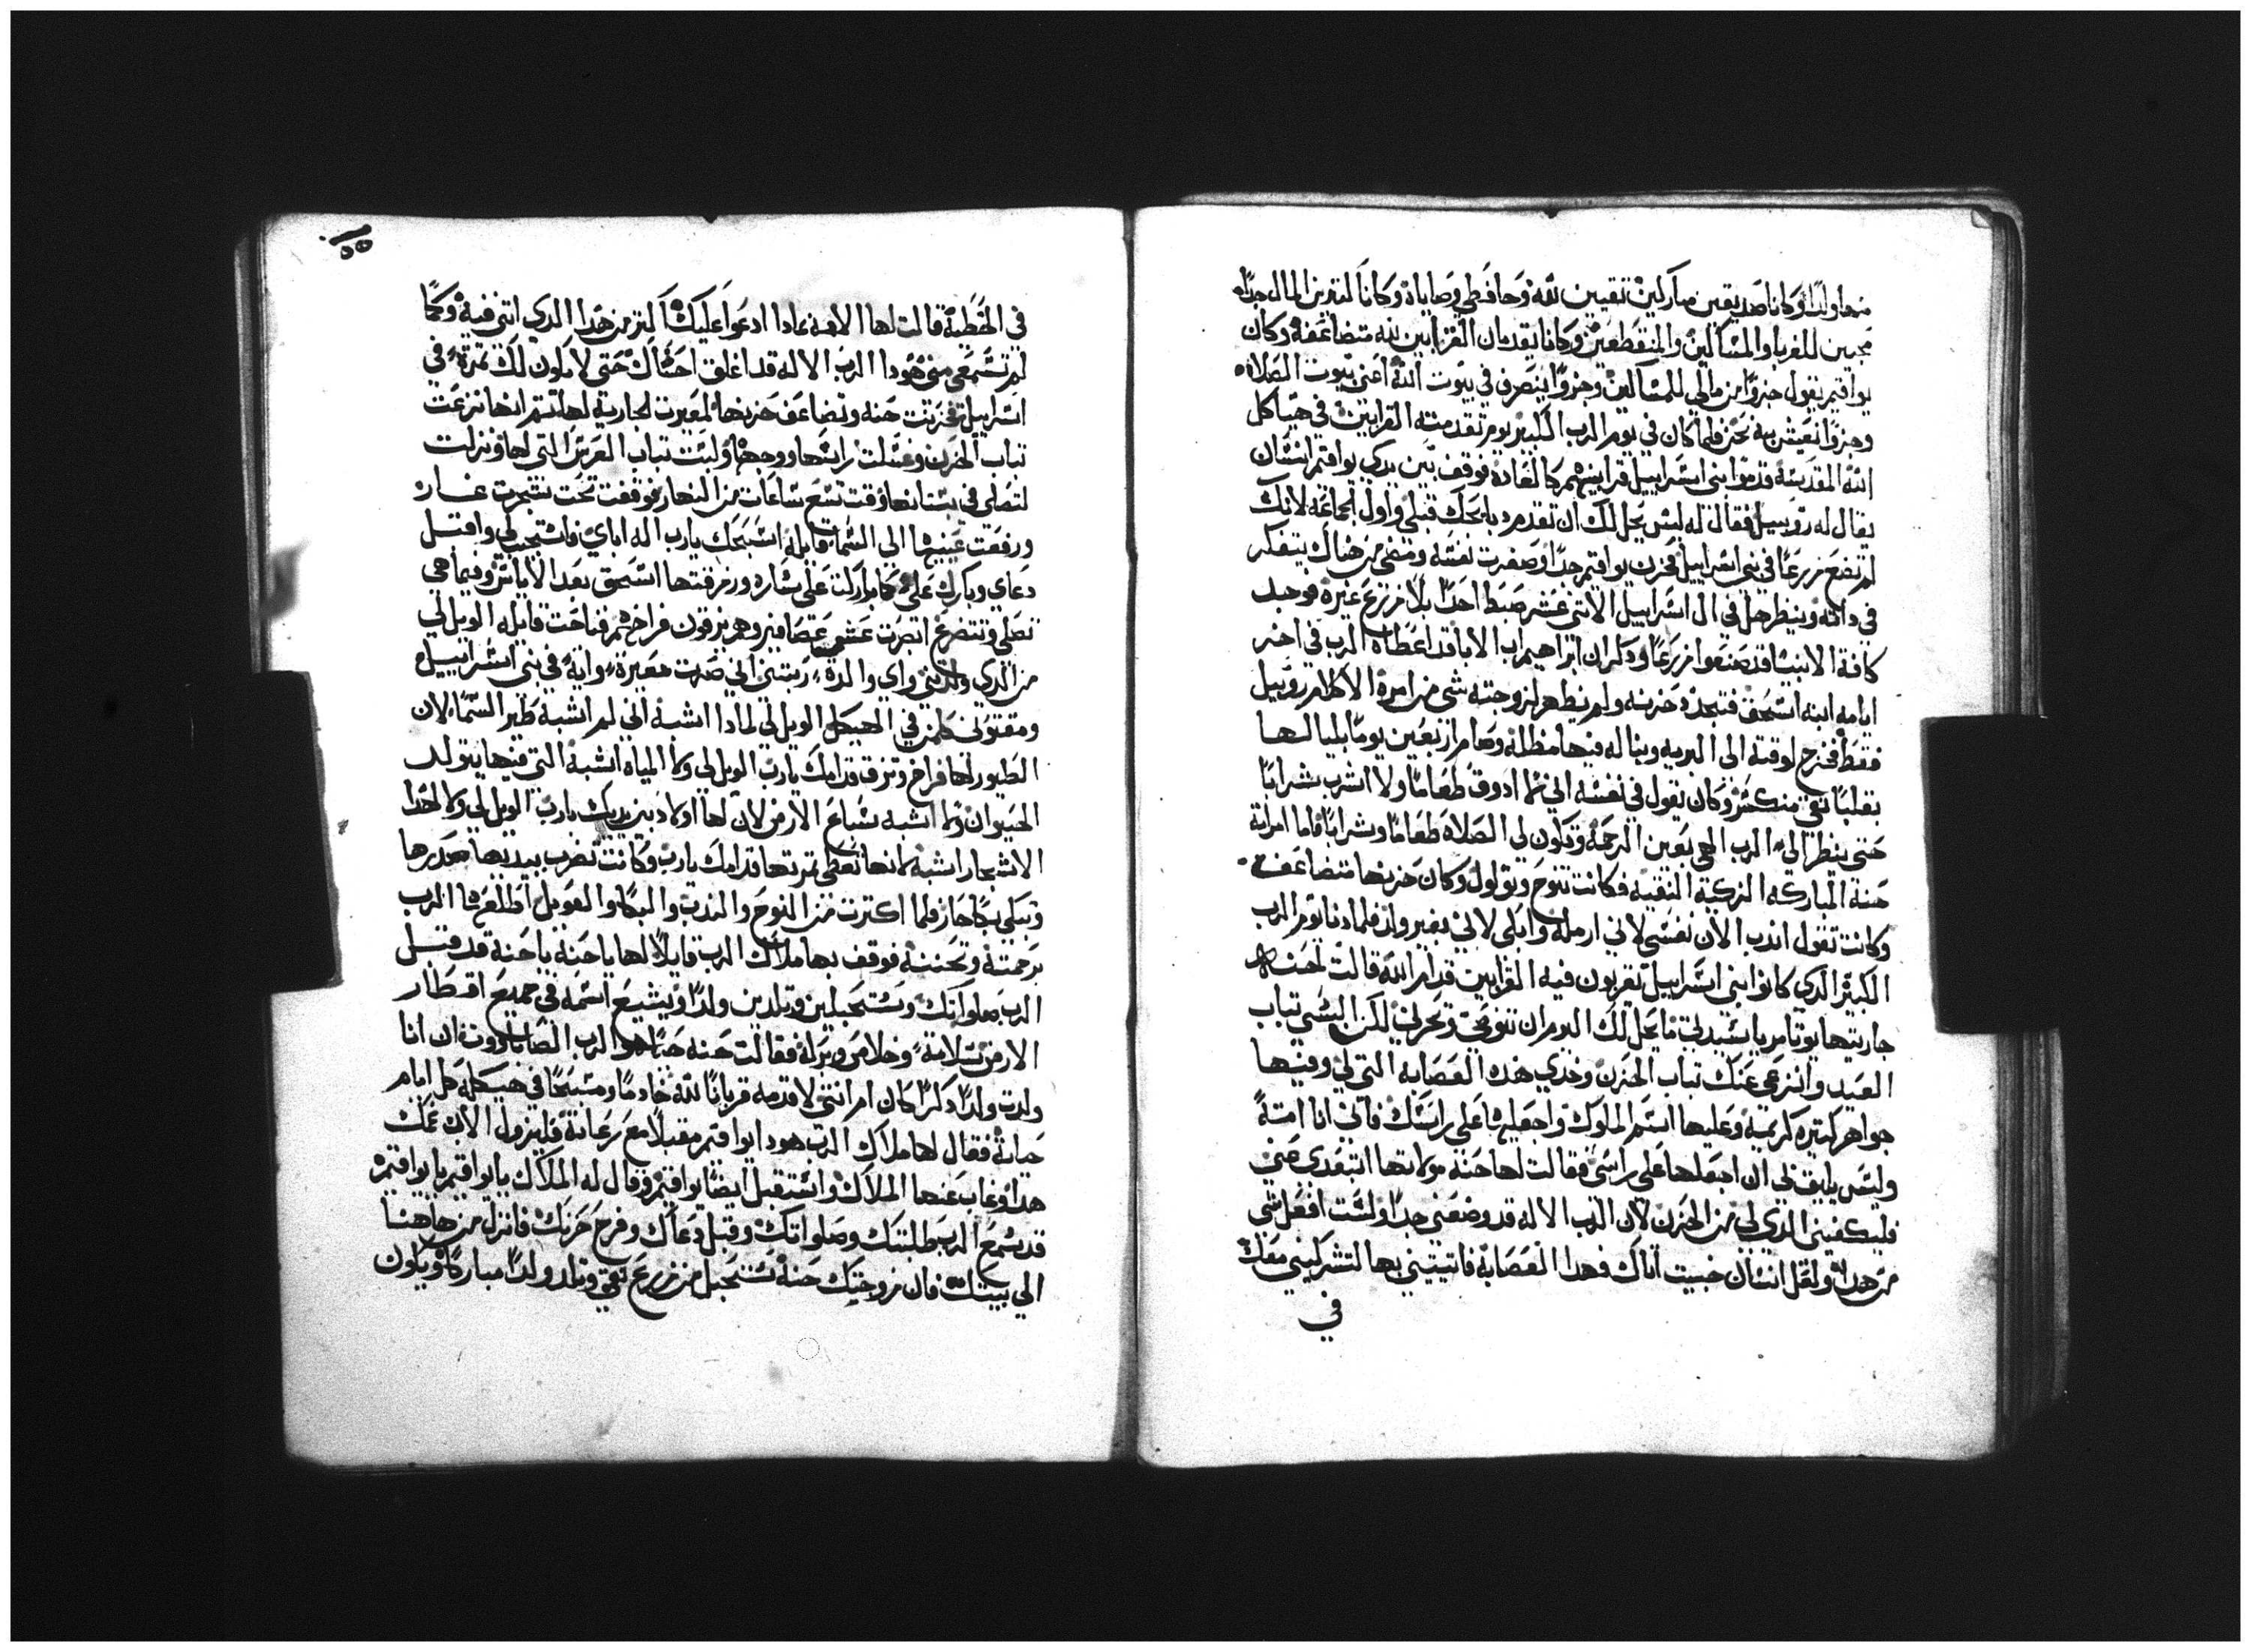 منها ولدًا وكانا صديقين مباركين تقيين لله وحافظي وصاياه وكانا كتيرين المال جدًا
محبين للغربا والمساكين والمنقطعين وكانا يقدمان القرابين لله متضاعفه وكان
يواقيم يقول جزوًا من مالي للمساكين وجزوًا ينصرف في بيوت الله اعني بيوت الصلاه
وجزوًا نعيش به نحن فلما كان في يوم الرب الكبير يوم تقدمته القرابين في هياكل
الله المقدسه قدموا بني اسراييل قرابينهم كالعاده فوقف بين يدي يواقيم انسان
يقال له روبيل فقال له ليس يحل لك ان تقدم دبايحك قبلي واول الجماعه لانك
لم تضع زرعًا في بني اسراييل فحزن يواقيم جدًا وصغرت نفسه ومضي من هناك يتفكر
في داته وينظر هل في ال اسراييل الاتني عشر صبط احدًا بلا زرع غيره فوجد
كافة الانبيا قد صنعوا زرعًا ودكر ان ابراهيم اب الابا قد اعطاه الرب في اخر
ايامه ابنه اسحق فتجدد حزنه ولم يظهر لزوجته شي من امره الا كلام روبيل
فقط فخرج لوقته الي البريه وبنا له فيها مظله وصام اربعين يومًا بلياليها
بقلبًا نقي منكسر وكان يقول في نفسه اني ما ادوق طعامًا ولا اشرب شرابًا
حتي ينظر الي الرب الهي بعين الرحمه وتكون لي الصلاه طعامًا وشرابًا فاما امراته
حنة المباركه الزكية النقيه فكانت تنوح وتولول وكان حزنها متضاعف
وكانت تقول اندب الان نفسي لاني ارمله وابكي لاني بغير ولد فلما دنا يوم الرب
الكبير الدي كانوا بني اسراييل يقربون فيه القرابين قدام الله قالت لحنه
جاريتها يوتام يا سيدتي ما يحل لك اليوم ان تنوحي وتحزني لكن البسي تياب
العيد وانزعي عنك تياب الحزن وخدي هده العصابه التي لي وفيها
جواهر كتيره كريمة وعليها اسم الملوك واجعليها علي راسك فاني انا امتة
وليس يليق لي ان اجعلها علي راسي فقالت لها حنة مولاتها ابتعدي عني
فليكفيني الدي لي من الحزن لان الرب الاله قد وضعني جدًا ولست افعل شي
من هدا ولعل انسان خبيت اتاك فهدا العصابة فاتيتيني بها لتشركيني معك
في
٥٥
في الخطية قالت لها الامة مادا ادعوا عليك اكتر من هدا الدي انتي فية وكما
لم تسمعي مني هودا الرب الاله قد اغلق احشاك حتي لا يكون لك تمرة في
اسراييل فحزنت حنه وتضاعف حزنها لمعيرت الجارية لها تم انها نزعت
تياب الحزن وغسلت راسها ووجهها ولبست تياب العرس التي لها ونزلت
لتصلي في بستانها وقت تسع ساعات من النهار فوقفت تحت شجرت غار
ورفعت عينيها الي السما قايلة اسبحك يارب اله اباي فاستجيب لي واقبل
دعاي وبارك علي كما باركت علي ساره ورزقتها اسحق بعد الاياس وفيما هي
تصلي وتتضرع ابصرت عش عصافير وهم يزقون فراخهم فناحت قايله الويل لي
من الدي ولدني واي والدة ربتني الي صرت معيرة واية في بني اسراييل
ومقتوني كلمن في الهيكل الويل لي لمادا اشبة اني لم اشبة طير السما لان
الطيور لها فراخ وتزق قدامك يارب الويل لي ولا المياه اشبة التي فيها يتولد
الحيوان ولا اشبه سباع الارض لان لها اولاد بين يديك يارب الويل لي ولا لهدا
الاشجار اشبة لانها تعطي تمرتها قدامك يارب وكانت تضرب بيديها صدرها
وتبكي بكًا حار فلما اكترت من النوح والندب والبكا والعويل اطلع عليها الرب
برحمتة وتحننة فوقف بها ملاك الرب قايلًا لها يا حنة يا حنة قد قبل
الرب صلواتك وستحبلين وتلدين ولدًا ويشيع اسمه في جميع اقطار
الارض سلامة وخلاص وبركه فقالت حنه حيًا هو الرب الصاباووت ان انا
ولدت ولدًا دكرًا كان ام انتي لاقدمه قربانًا لله خادمًا ومسبحًا في هيكله كل ايام
حياته فقال لها ملاك الرب هودا يواقيم مقبلًا مع رعاته فليزول الان غمك
هدا وغاب عنها الملاك واستقبل ايضًا يواقيم وقال له الملاك يا يواقيم يا يواقيم
قد سمع الرب طلبتك وصلواتك وقبل دعاك وفرج حزنك فانزل من هاهنا
الي بيتك فان زوجتك حنة ستحبل من زرع نقي وتلد ولدًا مباركًا ويكون